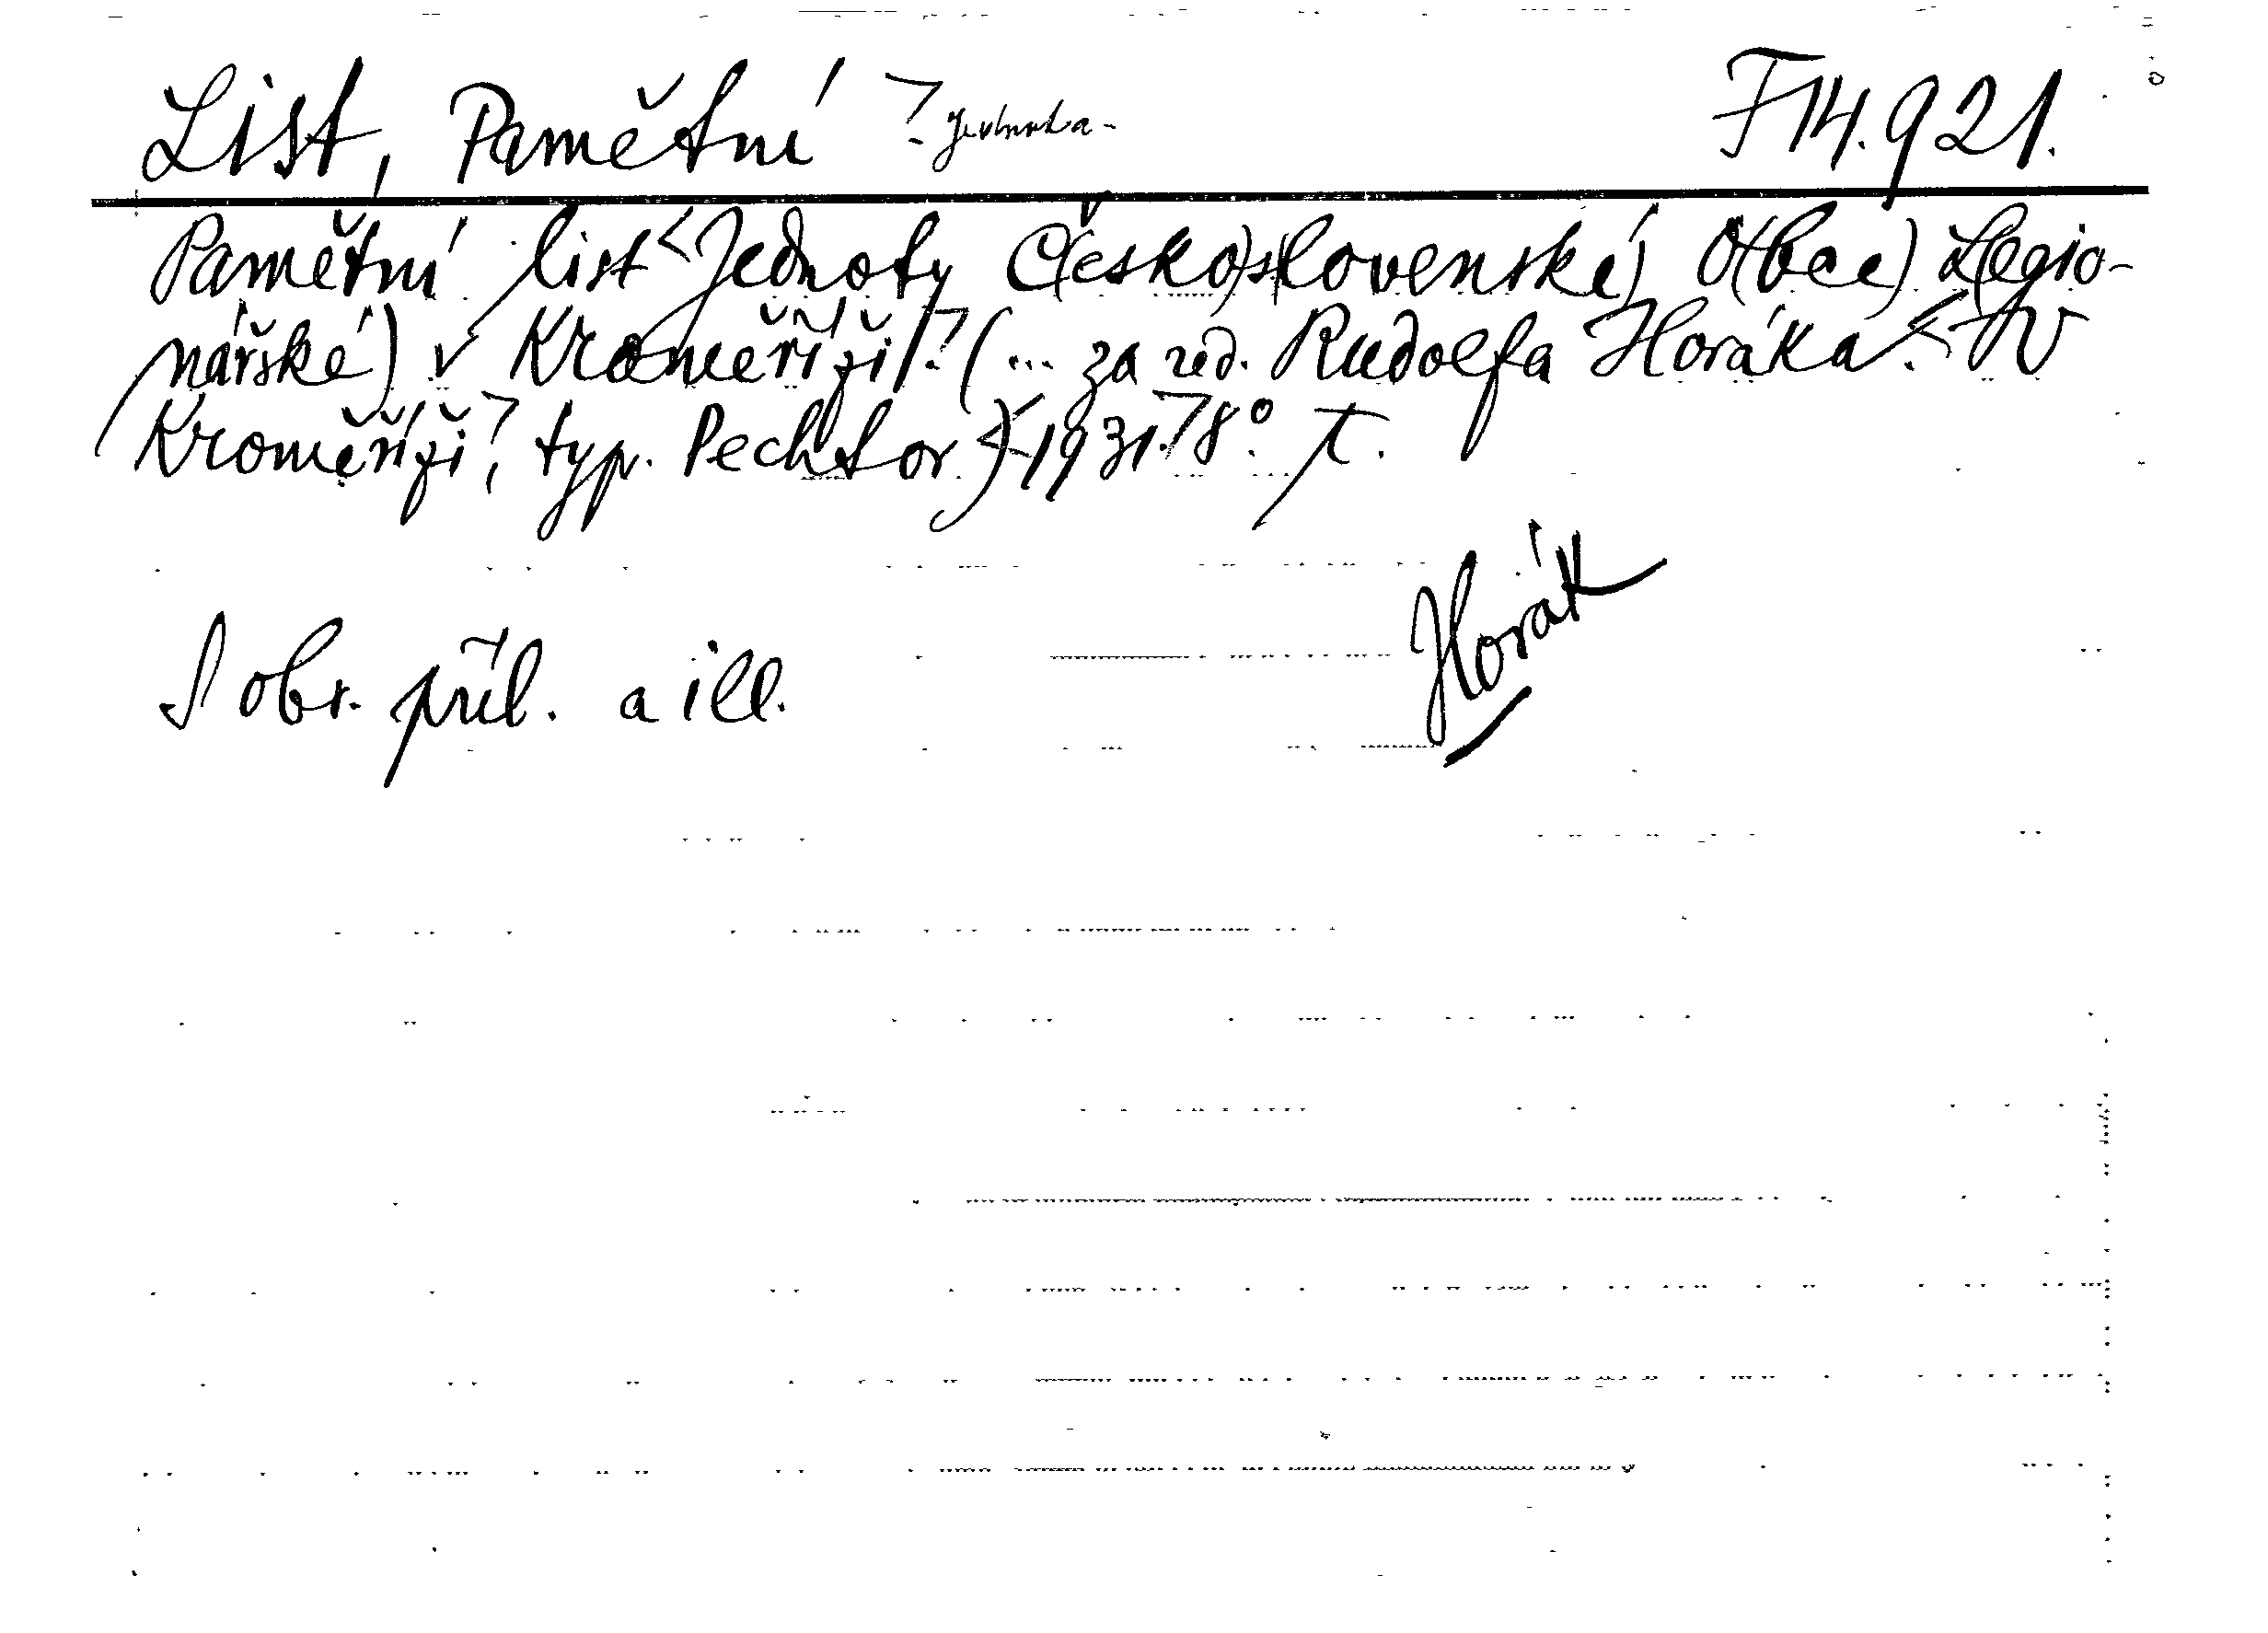 List, Pamětní F 14.921.
Pamětní list <Jednoty Č(esko)s(lovenské) O(bce) L(egio-
nářské) v Kroměříži.> (... za red. Rudolfa Horáka. <V
Kroměříži,> typ. Pechtor) <1931.> 8°. T.
Horák
S obr. příl. a ill.